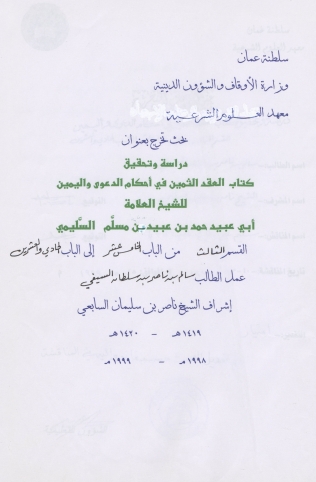 سلطنة عمان
وزارة الأوقاف والشؤون الدينية
معهد العلوم الشرعية
بحث تخرج بعنوان
دراسة وتحقيق
كتاب العقد الثمين في أحكام الدعوى واليمين
للشيخ العلامة
أبي عبيد حمد بن عبيد بن مسلَّم السَّليمي
القسم الثالث من الباب الخامس عشر إلى الباب الحادي والعشرين
عمل الطالب سالم بن ناصر بن سلطان السيفي
إشراف الشيخ ناصر بن سليمان السابعي
١٤١٩هـ - ١٤٢٠هـ
١٩٩٨م - ١٩٩٩م